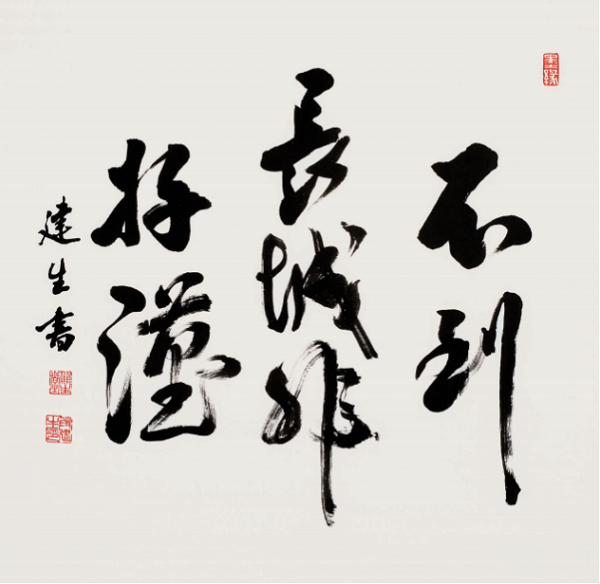 不到
長城非
好漢
建生書
墨緣